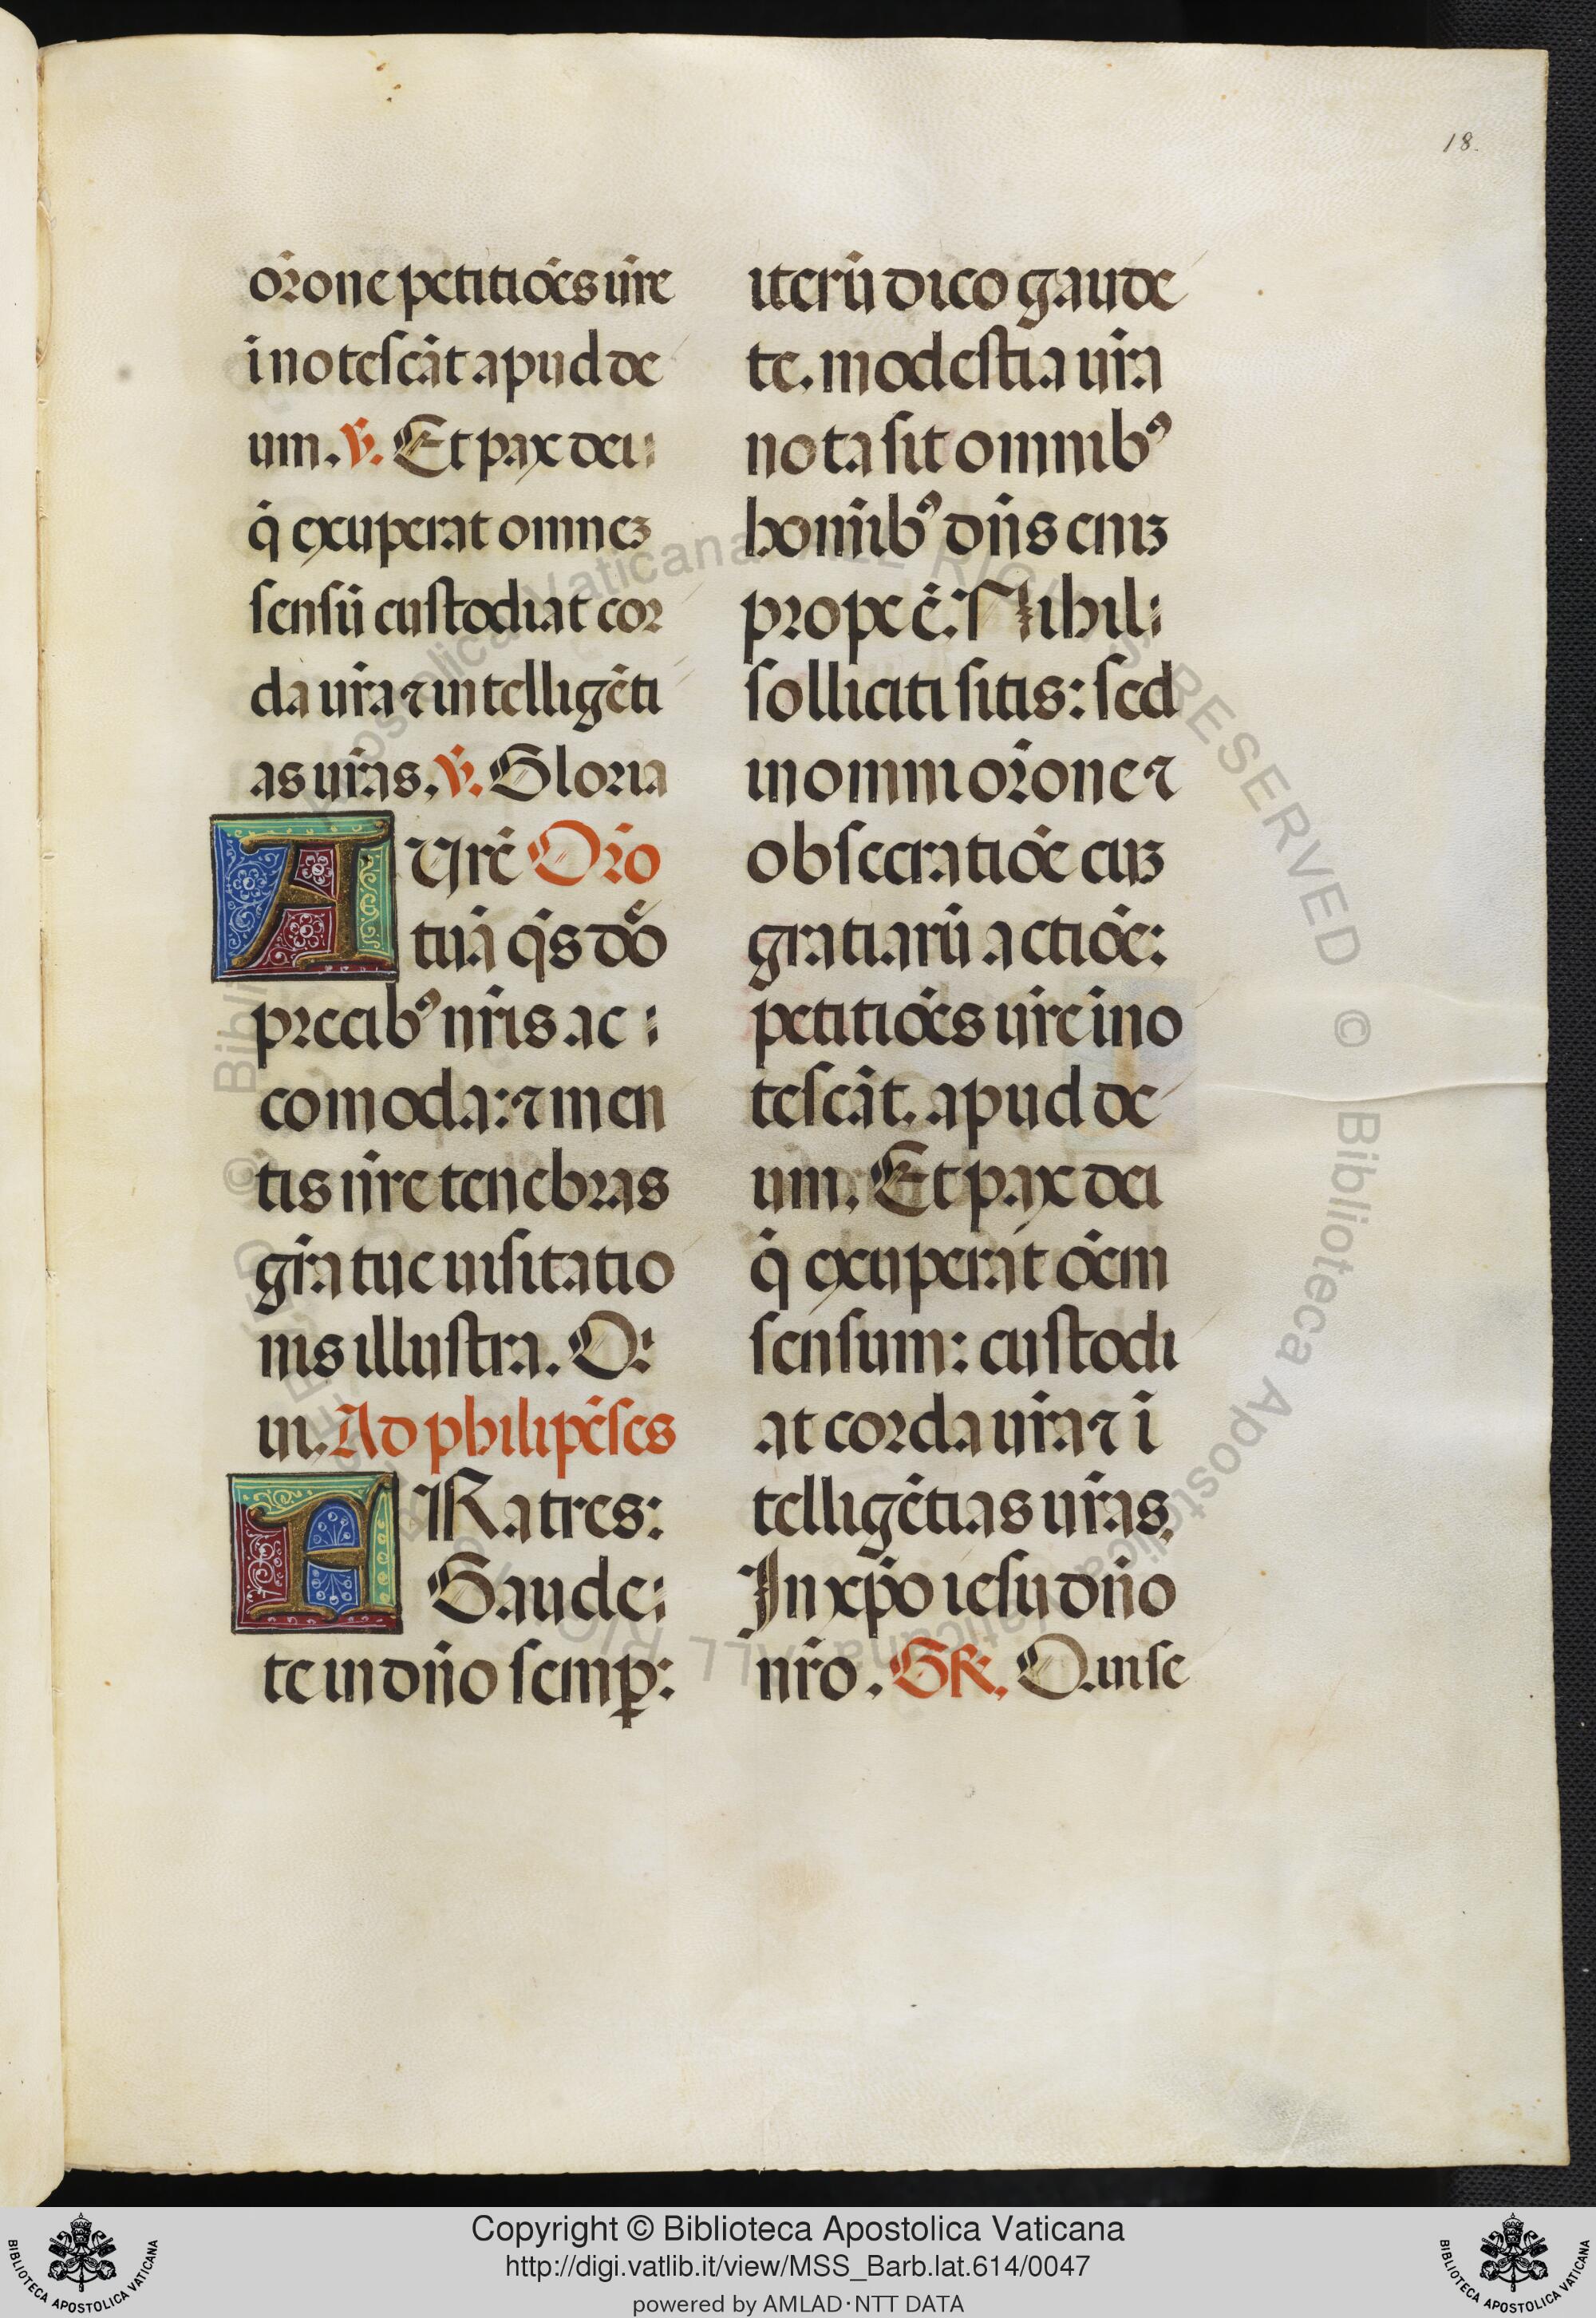 18.
or̃one petitiões ur̃e
inotescãt apud de
um. ℣. Et pax dei
q̃ exuperat omneꝫ
sensũ custodiat cor
da ur̃a ⁊ intelligẽti
as ur̃as. ℣. Gloria
⁊ Aurẽ Or̃o
tuã q̃s dõ
precibꝰ nr̃is ac
comoda: ⁊ men
tis nr̃e tenebras
gr̃a tue uisitatio
nis illustra. Q
ui. Ad philipẽses
FRatres:
Gaude
te in dño semꝑ:
iterũ dico gaude
te. modestia ur̃a
nota sit omnibꝰ
homĩbꝰ dñs eniꝫ
prope ẽ. Nihil
solliciti sitis: sed
in omni or̃one ⁊
obsecratiõe cuꝫ
gratiarũ actiõe:
petitiões ur̃e ino
tescãt. apud de
um. Et pax dei
q̃ exuperat õem
sensum: custodi
at corda ur̃a ⁊ ĩ
telligẽtias ur̃as,
In xp̃o iesu dño
nr̃o. GR. Qui se
Copyright © Biblioteca Apostolica Vaticana
http://digi.vatlib.it/view/MSS_Barb.lat.614/0047
powered by AMLAD·NTT DATA
BIBLIOTECA APOSTOLICA VATICANA
BIBLIOTECA APOSTOLICA VATICANA